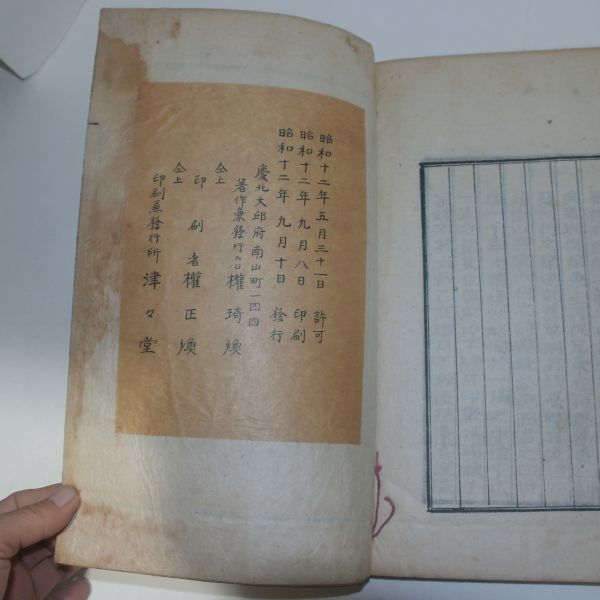 昭和十二年五月三十一日 許可
昭和十二年九月八日 印刷
昭和十二年九月十日 發行
慶北大邱府南山町一四四
著作兼發行者 權琦煥
仝上
印刷者 權正煥
仝上
印刷兼發行所 津々堂